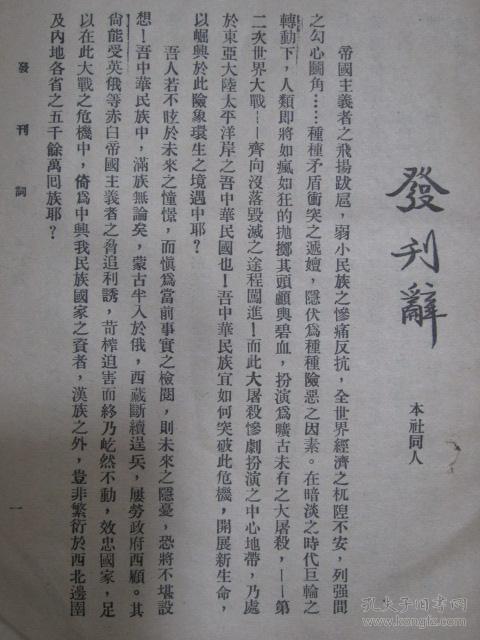 發刊辭
本社同人
帝國主義者之飛揚跋扈，弱小民族之慘痛反抗，全世界經濟之杌隉不安，列强間
之勾心鬭角……種種矛盾衝突之遞嬗，隱伏爲種種險惡之因素。在暗淡之時代巨輪之
轉動下，人類即將如瘋如狂的拋擲其頭顱與碧血，扮演爲曠古未有之大屠殺，——第
二次世界大戰——齊向沒落毀滅之途程闖進！而此大屠殺慘劇扮演之中心地帶，乃處
於東亞大陸太平洋岸之吾中華民國也！吾中華民族宜如何突破此危機，開展新生命，
以崛興於此險象環生之境遇中耶？
吾人若不眩於未來之憧憬，而愼爲當前事實之檢閱，則未來之隱憂，恐將不堪設
想！吾中華民族中，滿族無論矣，蒙古半入於俄，西藏斷續逞兵，屢勞政府西顧。其
尙能受英俄等赤白帝國主義者之脅迫利誘，苛榨迫害而終乃屹然不動，效忠國家，足
以在此大戰之危機中，倚爲中興我民族國家之資者，漢族之外，豈非繁衍於西北邊圉
及內地各省之五千餘萬回族耶？
發刊詞
一
孔夫子旧书网